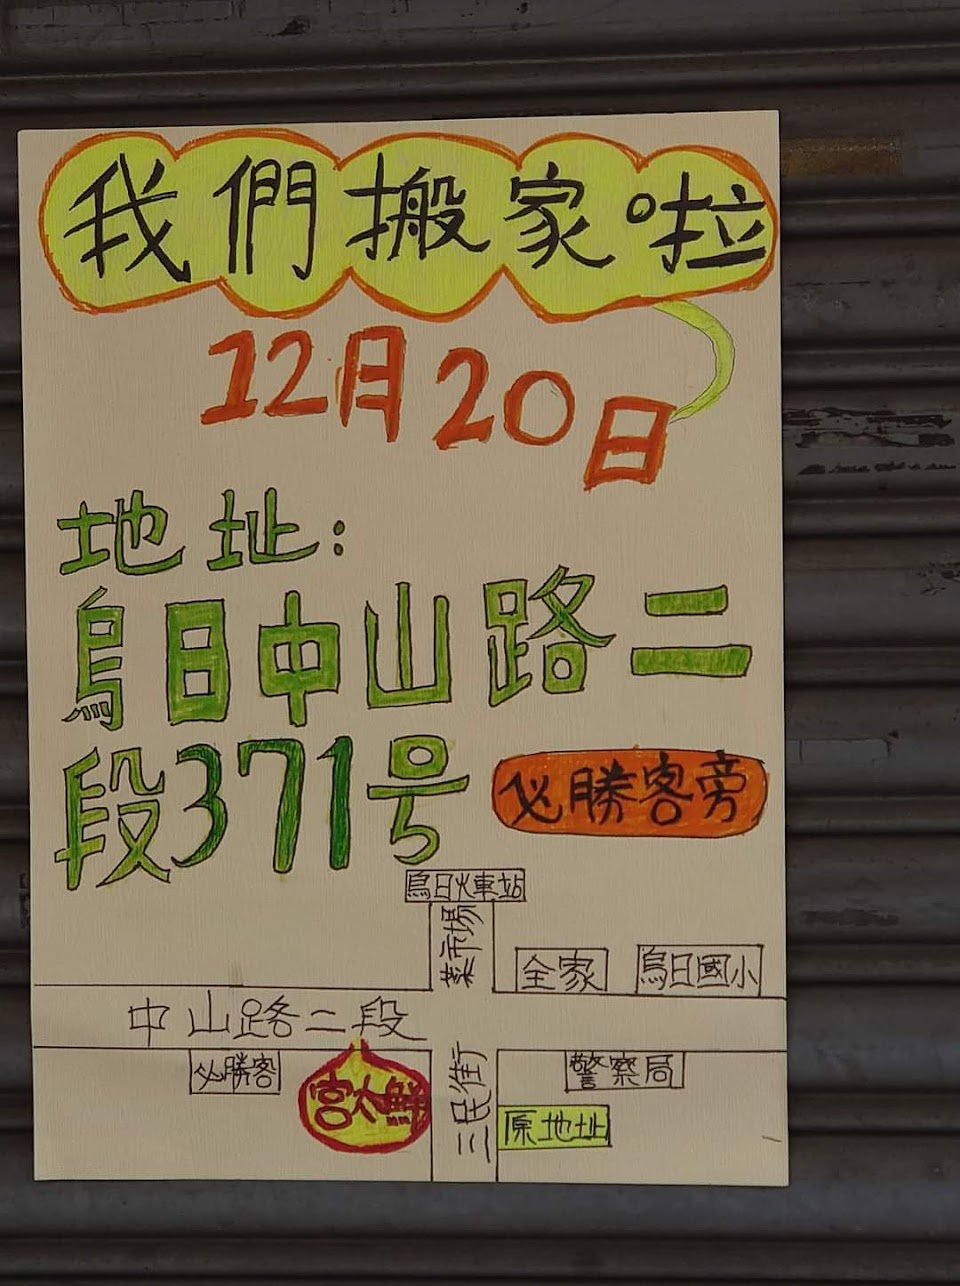 我們搬家啦
12月20日
地址:
烏日中山路二
段371号
必勝客旁
烏日火車站
菜市場
全家
烏日國小
中山路二段
必勝客
宮大鮮
三民街
警察局
原地址